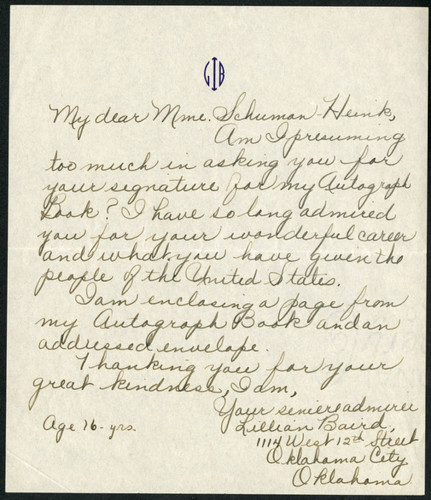 LIB
My dear Mme. Schuman-Heink,
Am I presuming
too much in asking you for
your signature for my Autograph
Book? I have so long admired
you for your wonderful career
and what you have given the
people of the United States.
I am enclosing a page from
my Autograph Book and an
addressed envelope.
Thanking you for your
great kindness, I am,
Your sincere admirer
Lillian Baird,
Age 16-yrs.
1114 West 12th Street
Oklahoma City
Oklahoma